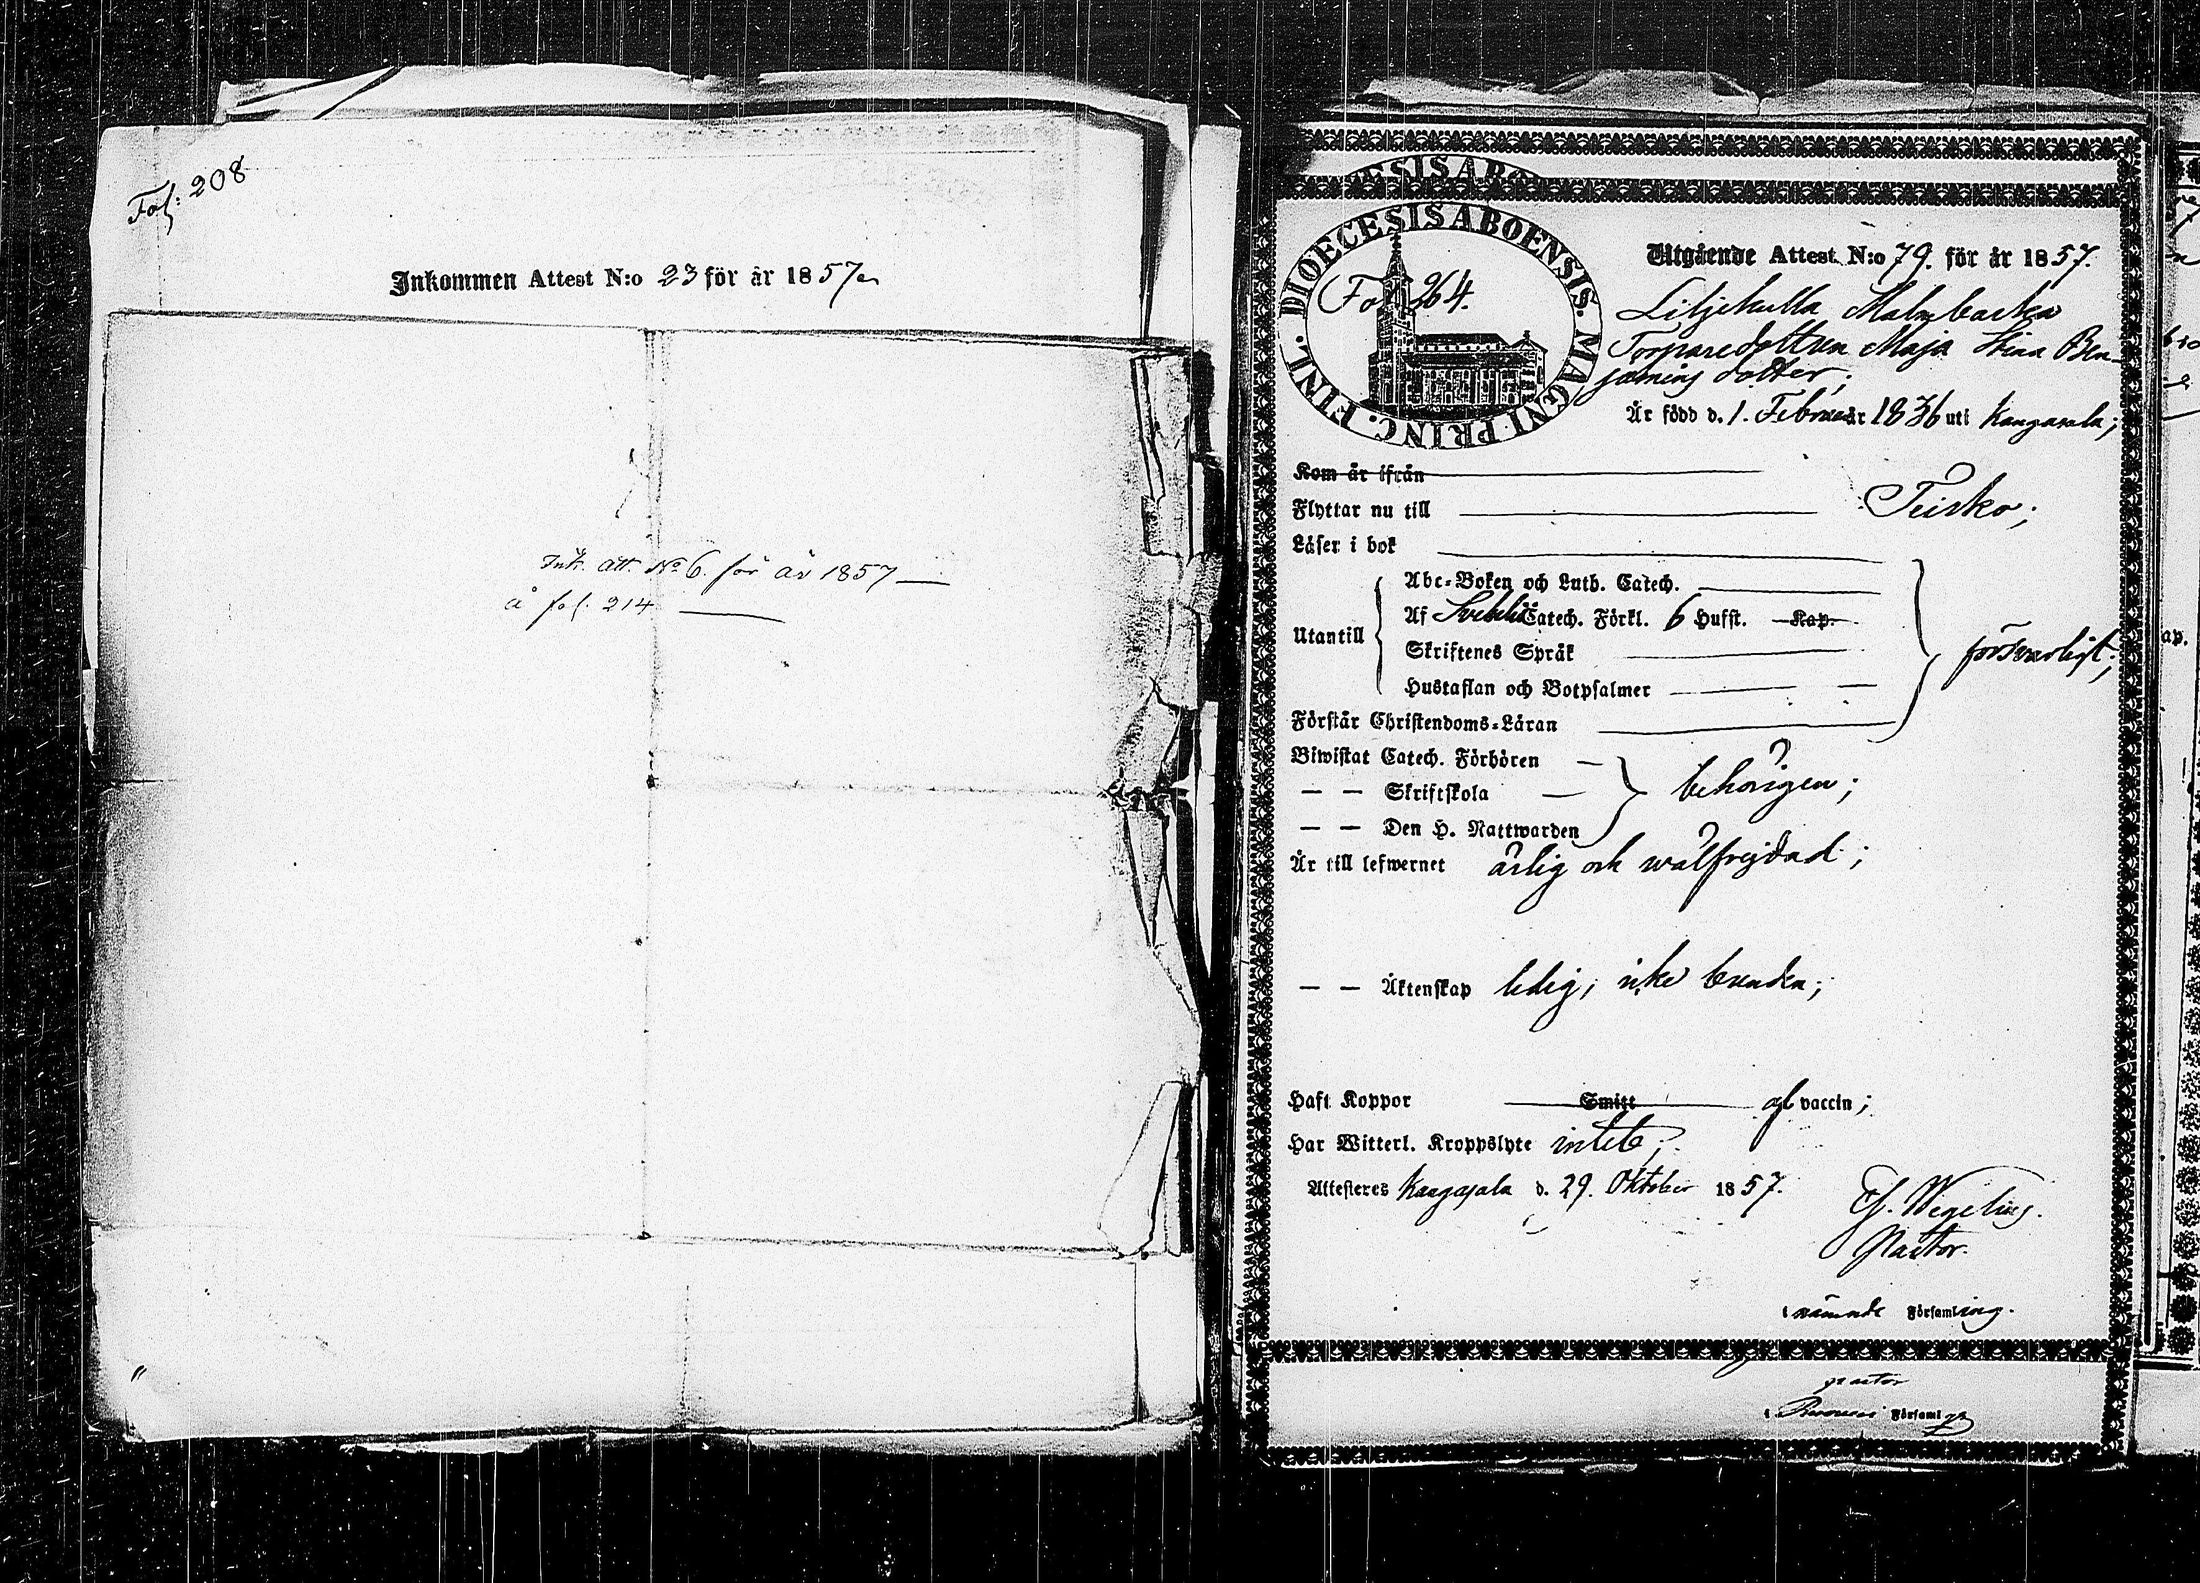 Fol: 208
Inkommen Attest N:o 23 för år 1857
Ink. att. No 6. för år 1857
å fol. 214
DIOECESIS ABOENSIS. MAGNI PRINC. FINL.
Fol 264.
Utgående Attest N:o 79. för år 1857.
Liljekulla Malmbacka
Torparedottren Maja Stina Ben-
jamins dotter;
Är född d. 1. Februar 1836 uti Kangasala;
Kom år ifrån
Flyttar nu till Teisko;
Läser i bok
Abc-Boken och Luth. Catech.
Utantill
Af Svebilii Catech. Förkl. 6 Hufst. Kap.
Skriftenes Språk
försvarligt;
Hustaflan och Botpsalmer
Förstår Christendoms-Läran
Biwistat Catech. Förhören
— — Skriftskola
behörigen;
— — Den H. Nattwarden
Är till lefwernet ärlig och wälfrejdad;
— — Äktenskap ledig; icke bunden;
Haft Koppor Smitt gl vaccin;
Har Witterl. Kroppslyte intet;
Attesteres Kangasala d. 29. Oktober 1857.
Wegelius.
Pastor.
i nämnde Församling.
pastor
i Ruovesi Församl